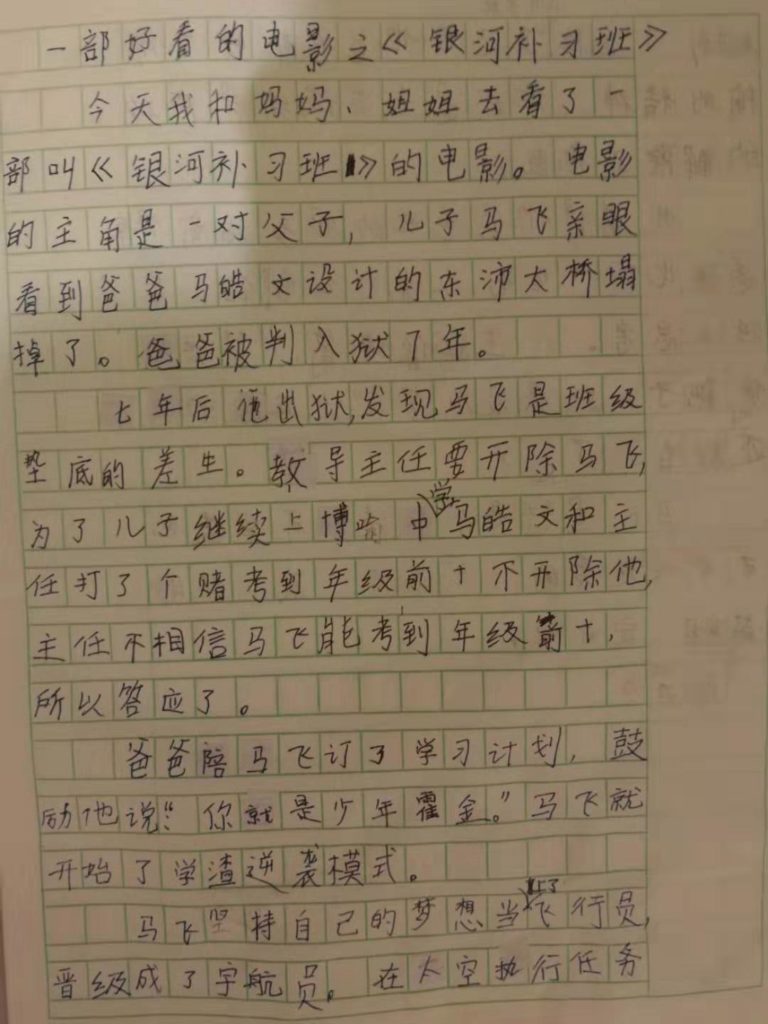 一部好看的电影之《银河补习班》
今天我和妈妈、姐姐去看了一
部叫《银河补习班》的电影。电影
的主角是一对父子，儿子马飞亲眼
看到爸爸马皓文设计的东沛大桥塌
掉了。爸爸被判入狱7年。
七年后 出狱，发现马飞是班级
垫底的差生。教导主任要开除马飞，
为了儿子继续上博喻中学马皓文和主
任打了个赌考到年级前十不开除他，
主任不相信马飞能考到年级箭十，
所以答应了。
爸爸陪马飞订了学习计划，鼓
励他说：“你就是少年霍金。”马飞就
开始了学渣逆袭模式。
马飞坚持自己的梦想当上了飞行员，
晋级成了宇航员。在太空执行任务